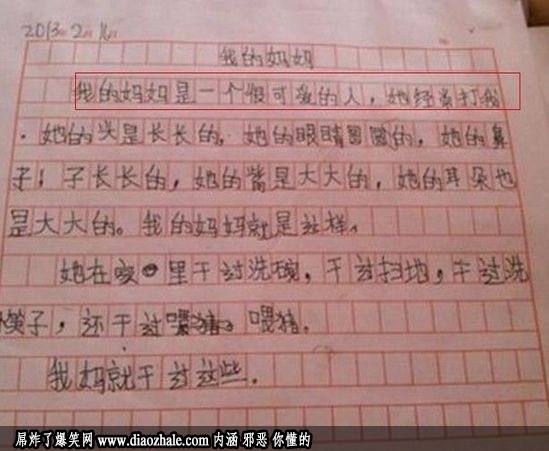 2013年2月
我的妈妈
我的妈妈是一个很可爱的人，她经常打我
。她的头是长长的，她的眼睛圆圆的，她的鼻
子！子长长的，她的嘴是大大的，她的耳朵也
是大大的。我的妈妈就是这样。
她在家里干过洗碗，干过扫地，干过洗
筷子，还干过喂猪。喂猪.
我妈就干过这些.
屌炸了爆笑网 www.diaozhale.com 内涵 邪恶 你懂的